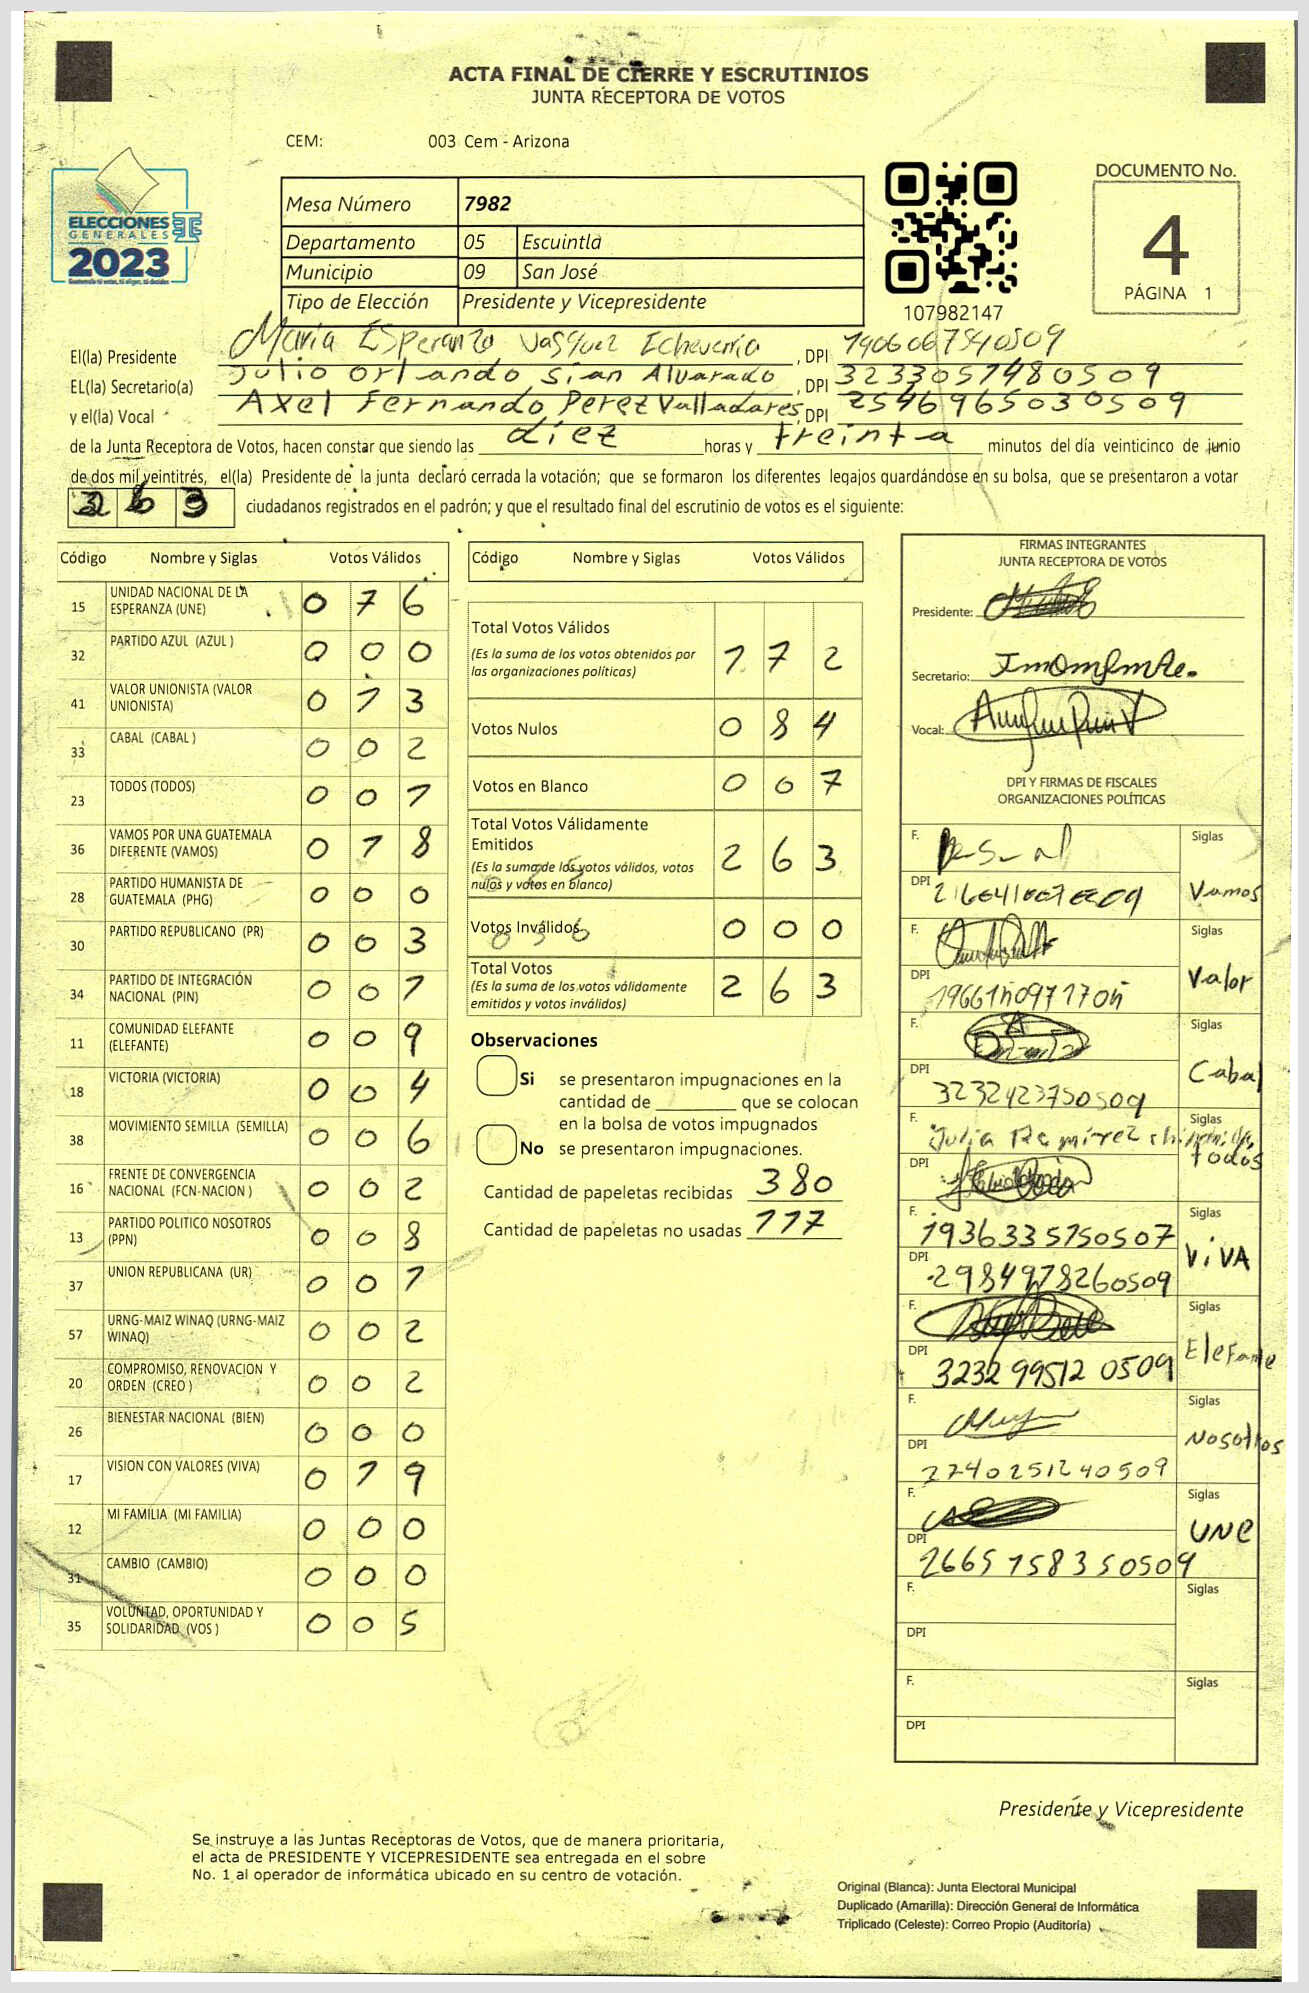 ACTA FINAL DE CIERRE Y ESCRUTINIOS
JUNTA RECEPTORA DE VOTOS
CEM: 003 Cem - Arizona
ELECCIONES
GENERALES
2023
Mesa Número 7982
Departamento 05 Escuintla
Municipio 09 San José
Tipo de Elección Presidente y Vicepresidente
107982147
DOCUMENTO No.
4
PÁGINA 1
El(la) Presidente María Esperanza Vasquez Echeverría, DPI 1906067540509
EL(la) Secretario(a) Julio Orlando Sian Alvarado, DPI 3233057480509
y el(la) Vocal Axel Fernando Perez Valladares, DPI 2546965030509
de la Junta Receptora de Votos, hacen constar que siendo las diez horas y treinta minutos del día veinticinco de junio
de dos mil veintitrés, el(la) Presidente de la junta declaró cerrada la votación; que se formaron los diferentes legajos guardándose en su bolsa, que se presentaron a votar
263 ciudadanos registrados en el padrón; y que el resultado final del escrutinio de votos es el siguiente:
Código Nombre y Siglas Votos Válidos
15 UNIDAD NACIONAL DE LA ESPERANZA (UNE) 0 7 6
32 PARTIDO AZUL (AZUL ) 0 0 0
41 VALOR UNIONISTA (VALOR UNIONISTA) 0 1 3
33 CABAL (CABAL ) 0 0 2
23 TODOS (TODOS) 0 0 1
36 VAMOS POR UNA GUATEMALA DIFERENTE (VAMOS) 0 1 8
28 PARTIDO HUMANISTA DE GUATEMALA (PHG) 0 0 0
30 PARTIDO REPUBLICANO (PR) 0 0 3
34 PARTIDO DE INTEGRACIÓN NACIONAL (PIN) 0 0 1
11 COMUNIDAD ELEFANTE (ELEFANTE) 0 0 9
18 VICTORIA (VICTORIA) 0 0 4
38 MOVIMIENTO SEMILLA (SEMILLA) 0 0 6
16 FRENTE DE CONVERGENCIA NACIONAL (FCN-NACION ) 0 0 2
13 PARTIDO POLITICO NOSOTROS (PPN) 0 0 8
37 UNION REPUBLICANA (UR) 0 0 1
57 URNG-MAIZ WINAQ (URNG-MAIZ WINAQ) 0 0 2
20 COMPROMISO, RENOVACION Y ORDEN (CREO ) 0 0 2
26 BIENESTAR NACIONAL (BIEN) 0 0 0
17 VISION CON VALORES (VIVA) 0 1 9
12 MI FAMILIA (MI FAMILIA) 0 0 0
31 CAMBIO (CAMBIO) 0 0 0
35 VOLUNTAD, OPORTUNIDAD Y SOLIDARIDAD (VOS ) 0 0 5
Código Nombre y Siglas Votos Válidos
Total Votos Válidos
(Es la suma de los votos obtenidos por
las organizaciones politicas) 1 7 2
Votos Nulos 0 8 4
Votos en Blanco 0 0 7
Total Votos Válidamente
Emitidos
(Es la suma de los votos válidos, votos
nulos y votos en blanco) 2 6 3
Votos Inválidos 0 0 0
Total Votos
(Es la suma de los votos válidamente
emitidos y votos inválidos) 2 6 3
Observaciones
Si se presentaron impugnaciones en la
cantidad de ________ que se colocan
en la bolsa de votos impugnados
No se presentaron impugnaciones.
Cantidad de papeletas recibidas 380
Cantidad de papeletas no usadas 117
FIRMAS INTEGRANTES
JUNTA RECEPTORA DE VOTOS
Presidente:
Secretario:
Vocal:
DPI Y FIRMAS DE FISCALES
ORGANIZACIONES POLÍTICAS
F. Siglas
DPI Vamos
F. Siglas
DPI Valor
F. Siglas
DPI 3232423750509 Cabal
Siglas
Julia Ramirez
DPI Todos
F. 1936335750507 Siglas
DPI 2984978260509 ViVA
F. Siglas
DPI 3232995120509 Elefante
F. Siglas
DPI 2740251240509 Nosotros
F. Siglas
DPI 2665158350509 UNE
F. Siglas
DPI
F. Siglas
DPI
Presidente y Vicepresidente
Se instruye a las Juntas Receptoras de Votos, que de manera prioritaria,
el acta de PRESIDENTE Y VICEPRESIDENTE sea entregada en el sobre
No. 1 al operador de informática ubicado en su centro de votación.
Original (Blanca): Junta Electoral Municipal
Duplicado (Amarilla): Dirección General de Informática
Triplicado (Celeste): Correo Propio (Auditoría)